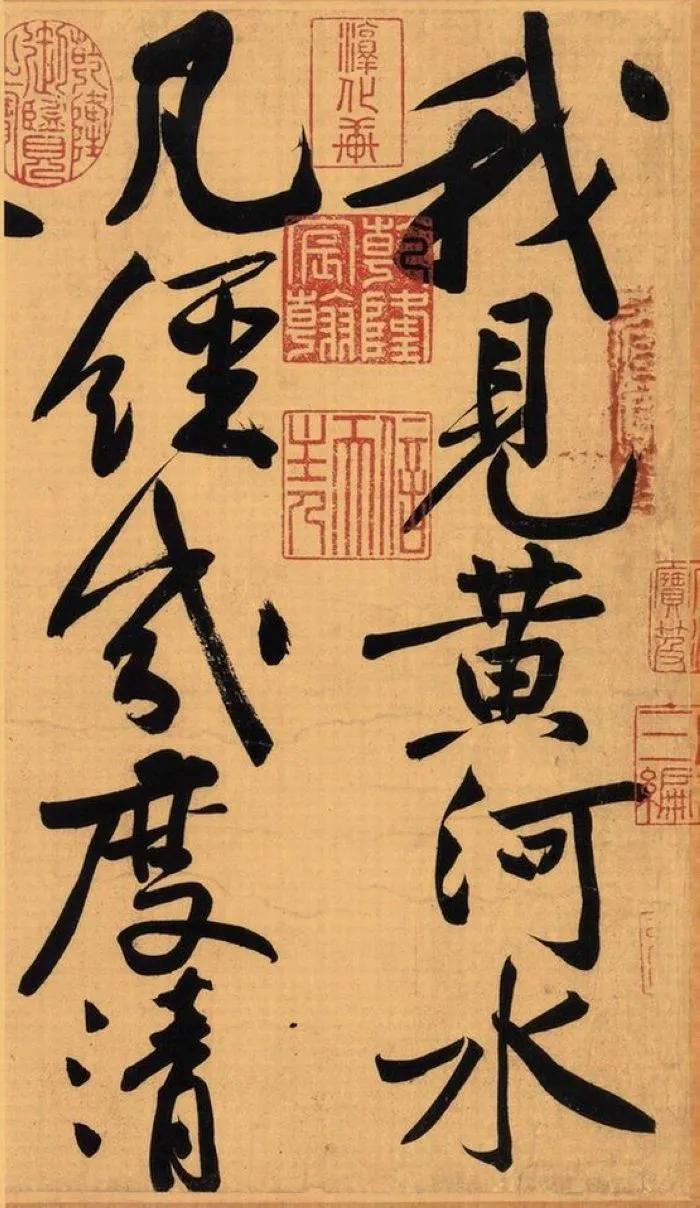 我見黄河水
凡經幾度清
淳化軒
乾隆宸翰
信天主人
寶笈
三編